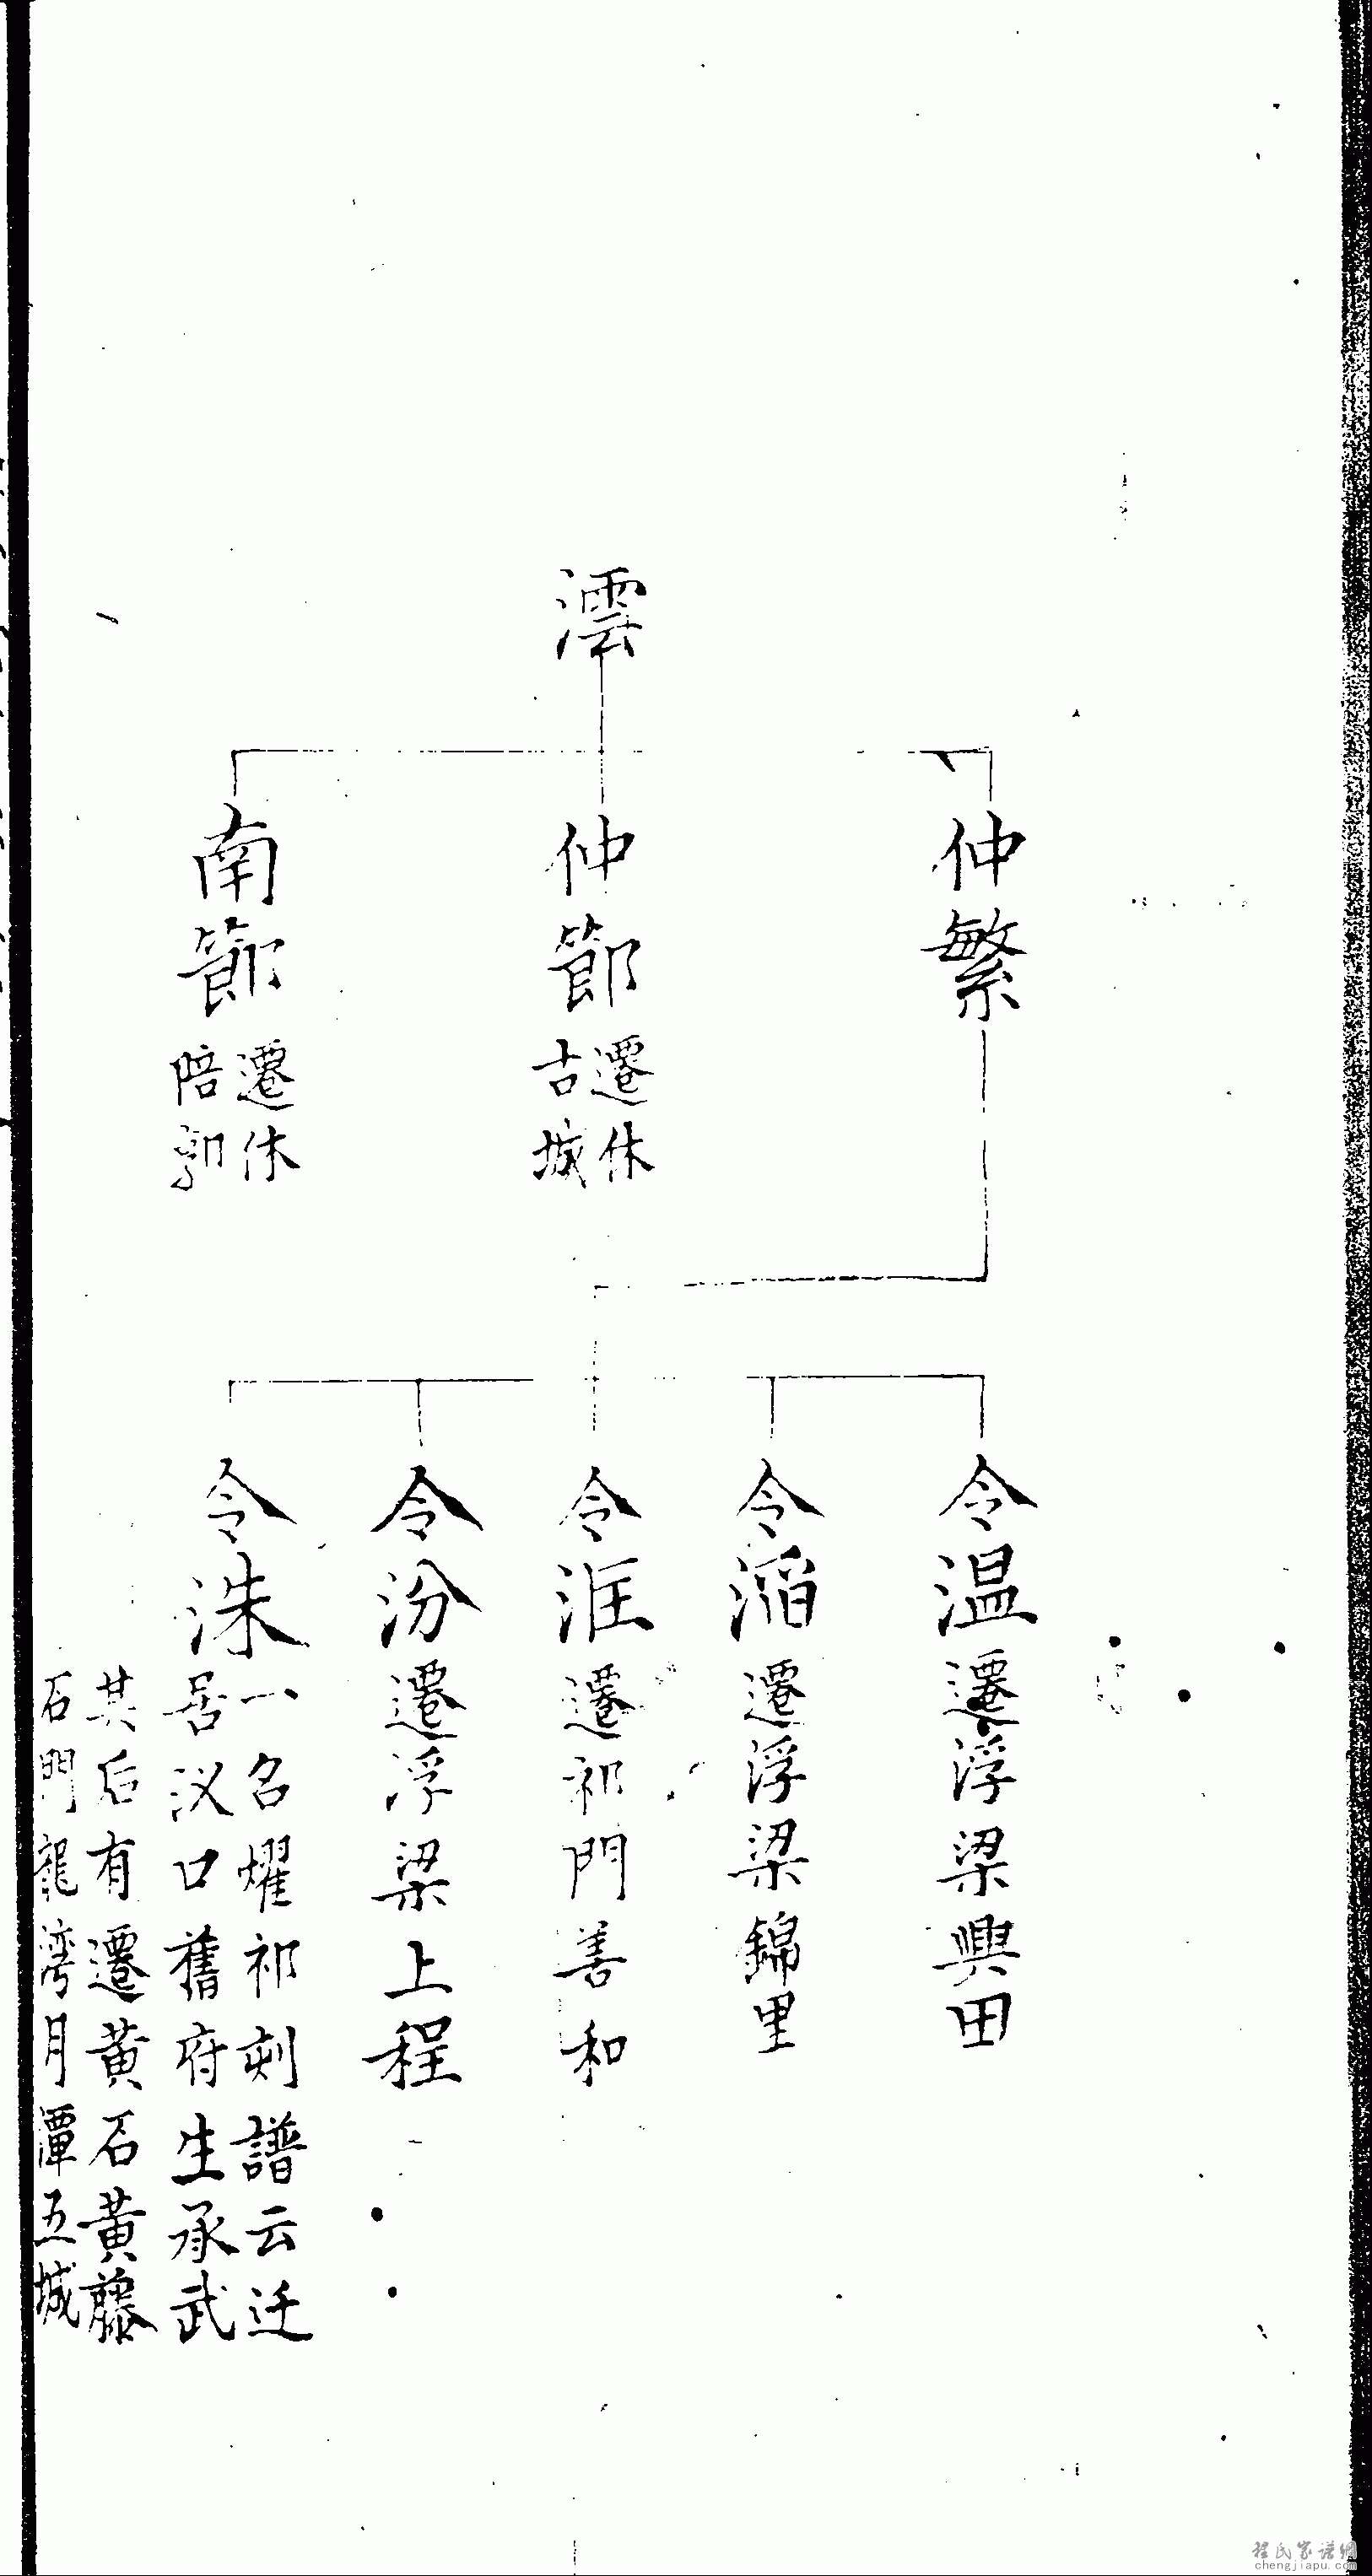 澐
仲繁
仲節
遷休
古城
南節
遷休
陪郭
令温
遷浮梁興田
令滔
遷浮梁錦里
令洭
遷祁門善和
令汾
遷浮梁上程
令洙
一名燿祁刻譜云迁
居汊口舊府生承武
其后有遷黄石黄藤
石門龍湾月潭五城
程氏家谱網
chengjiapu.com